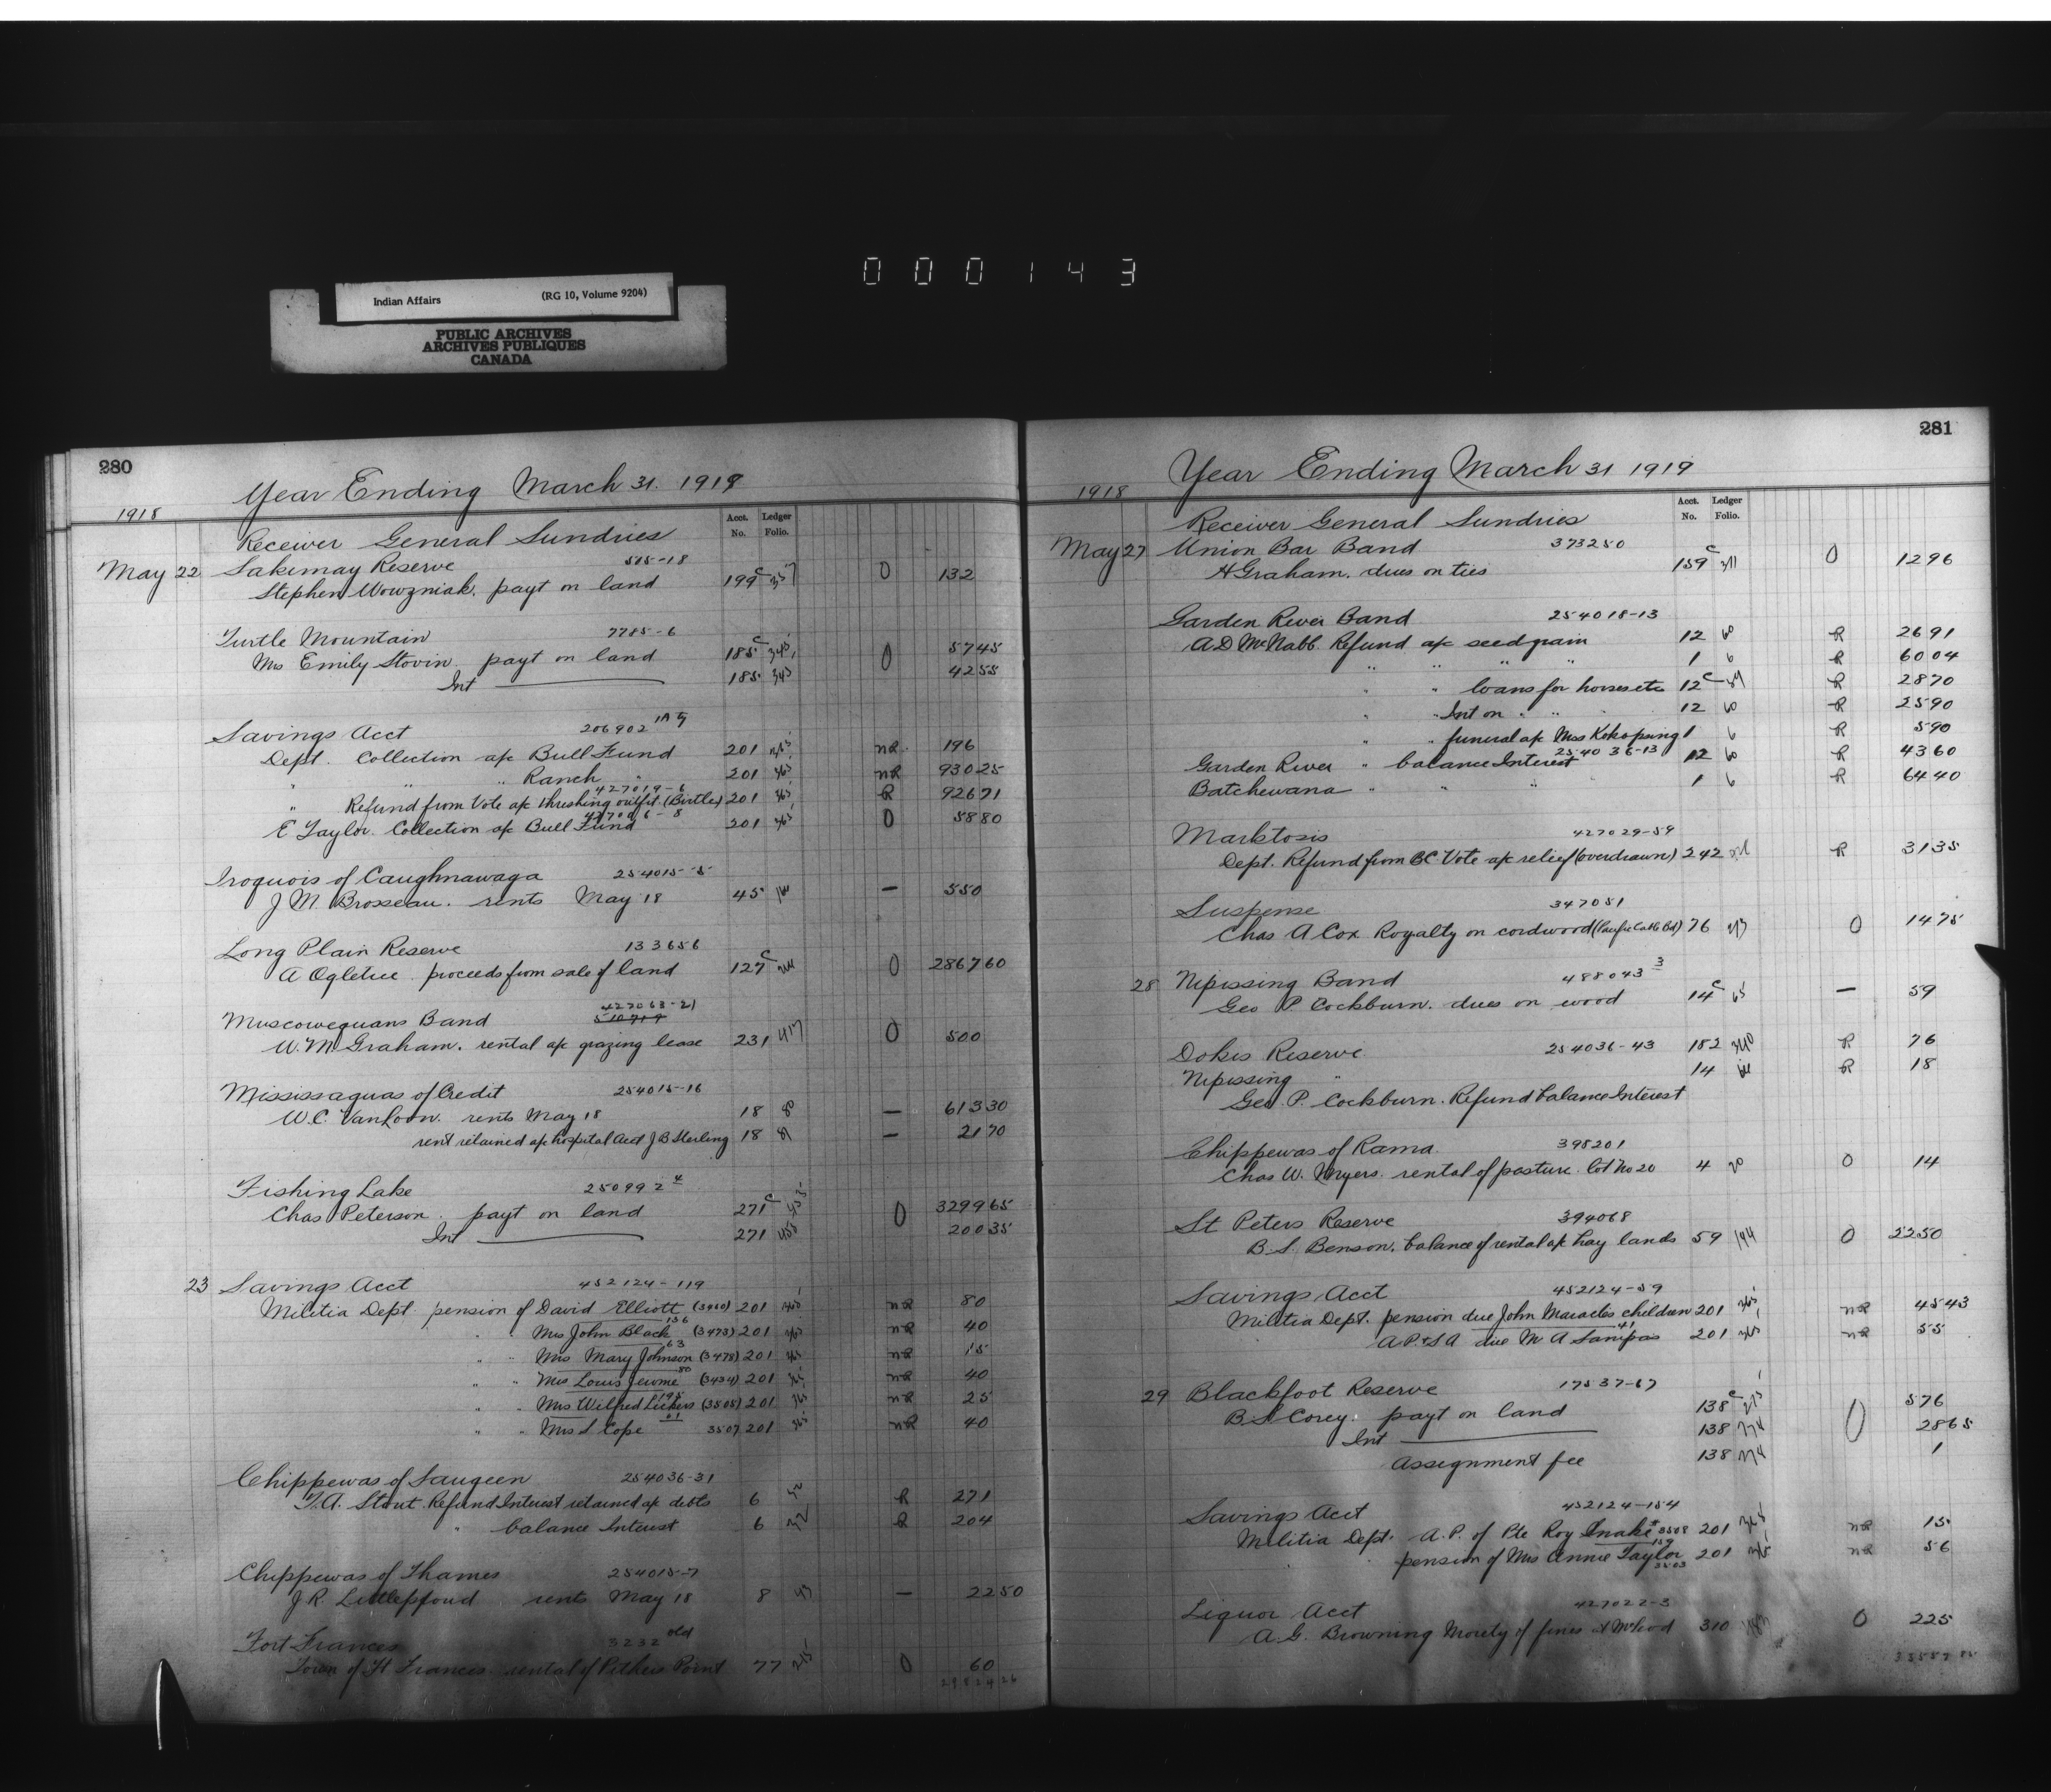 000143
Indian Affairs (RG 10, Volume 9204)
PUBLIC ARCHIVES
ARCHIVES PUBLIQUES
CANADA
280
Year Ending March 31. 1919
1918 Acct. No. Ledger Folio.
Receiver General Sundries
May 22 Sakimay Reserve 515-18
Stephen Wowzniak. payt on land 199c 357 0 132
Turtle Mountain 7785-6
Mrs Emily Stovin. payt on land 185c 345 0 5745
Int 185 345 4255
Savings Acct 206902
Dept. Collection a/c Bull Fund 201 365 nR 196
" " Ranch " 201 365 nR 93025
427019-6
" Refund from Vote a/c threshing outfit (Birtle) 201 365 R 92671
427006-8
E Taylor. Collection a/c Bull Fund 201 365 0 5880
Iroquois of Caughnawaga 254015-5
J M. Brosseau. rents May 18 45 — 550
Long Plain Reserve 133656
A Ogletree. proceeds from sale of land 127c 0 286760
427063-21
Muscowequans Band 510719
W. M. Graham. rental a/c grazing lease 231 417 0 500
Mississaguas of Credit 254015-16
W. C. VanLoon. rents May 18 18 — 61330
rent retained a/c hospital Acct J B Sterling 18 — 2170
Fishing Lake 250992 4
Chas Peterson. payt on land 271c 455 0 329965
Int 271 455 20035
23 Savings Acct 452124-119
Militia Dept pension of David Elliott (3460) 201 365 nR 80
136
" " Mrs John Black (3473) 201 365 nR 40
63
" " Mrs Mary Johnson (3478) 201 365 nR 15
80
" " Mrs Louis Jerome (3434) 201 365 nR 40
195
" " Mrs Wilfred Lickers (3505) 201 365 nR 25
61
" " Mrs S Cope 3507 201 365 nR 40
Chippewas of Saugeen 254036-31
T. A. Stout. Refund Interest retained a/c debts 6 32 R 271
" balance Interest 6 32 R 204
Chippewas of Thames 254015-7
J R. Littleproud rents May 18 8 — 2250
Fort Frances 3232 old
Town of Ft Frances rental of Pithers Point 77 215 0 60
281
Year Ending March 31 1919
1918 Acct. No. Ledger Folio.
Receiver General Sundries
May 27 Union Bar Band 373250
H Graham. dues on ties 159c 311 0 1296
Garden River Band 254018-13
A D McNabb Refund a/c seed grain 12 60 R 2691
" " " " 1 6 R 6004
" " loans for horses etc 12c R 2870
" " Int on " " 12 60 R 2590
" " funeral a/c Mrs Kokopung 1 6 R 590
254036-13
Garden River " balance Interest 12 60 R 4360
Batchewana " " " 1 6 R 6440
Marktosis 427029-59
Dept. Refund from BC Vote a/c relief (overdrawn) 242 R 3135
Suspense 347051
Chas A Cox Royalty on cordwood 76 213 0 1475
28 Nipissing Band 488043 3
Geo P Cockburn. dues on wood 14c 65 — 59
Dokis Reserve 254036-43 182 340 R 76
Nipissing " 14 R 18
Geo. P. Cockburn. Refund balance Interest
Chippewas of Rama. 398201
Chas W. Myers. rental of pasture. lot No 20 4 20 0 14
St Peters Reserve 394068
B. S. Benson. balance of rental a/c hay lands 59 144 0 2250
Savings Acct 452124-59
Militia Dept. pension due John Maracles children 201 365 nR 4543
41
A P. & S A due M A Sanipas 201 365 nR 55
29 Blackfoot Reserve 17537-67
B S Corey. payt on land 138c 275 0 576
Int 138 274 2865
Assignment fee 138 274 1
Savings Acct 452124-154
Militia Dept. A. P. of Pte Roy Snake 3508 201 365 nR 15
159
pension of Mrs Annie Taylor 201 365 nR 56
3503
Liquor Acct 427022-3
A. G. Browning Moiety of fines 310 483 0 225